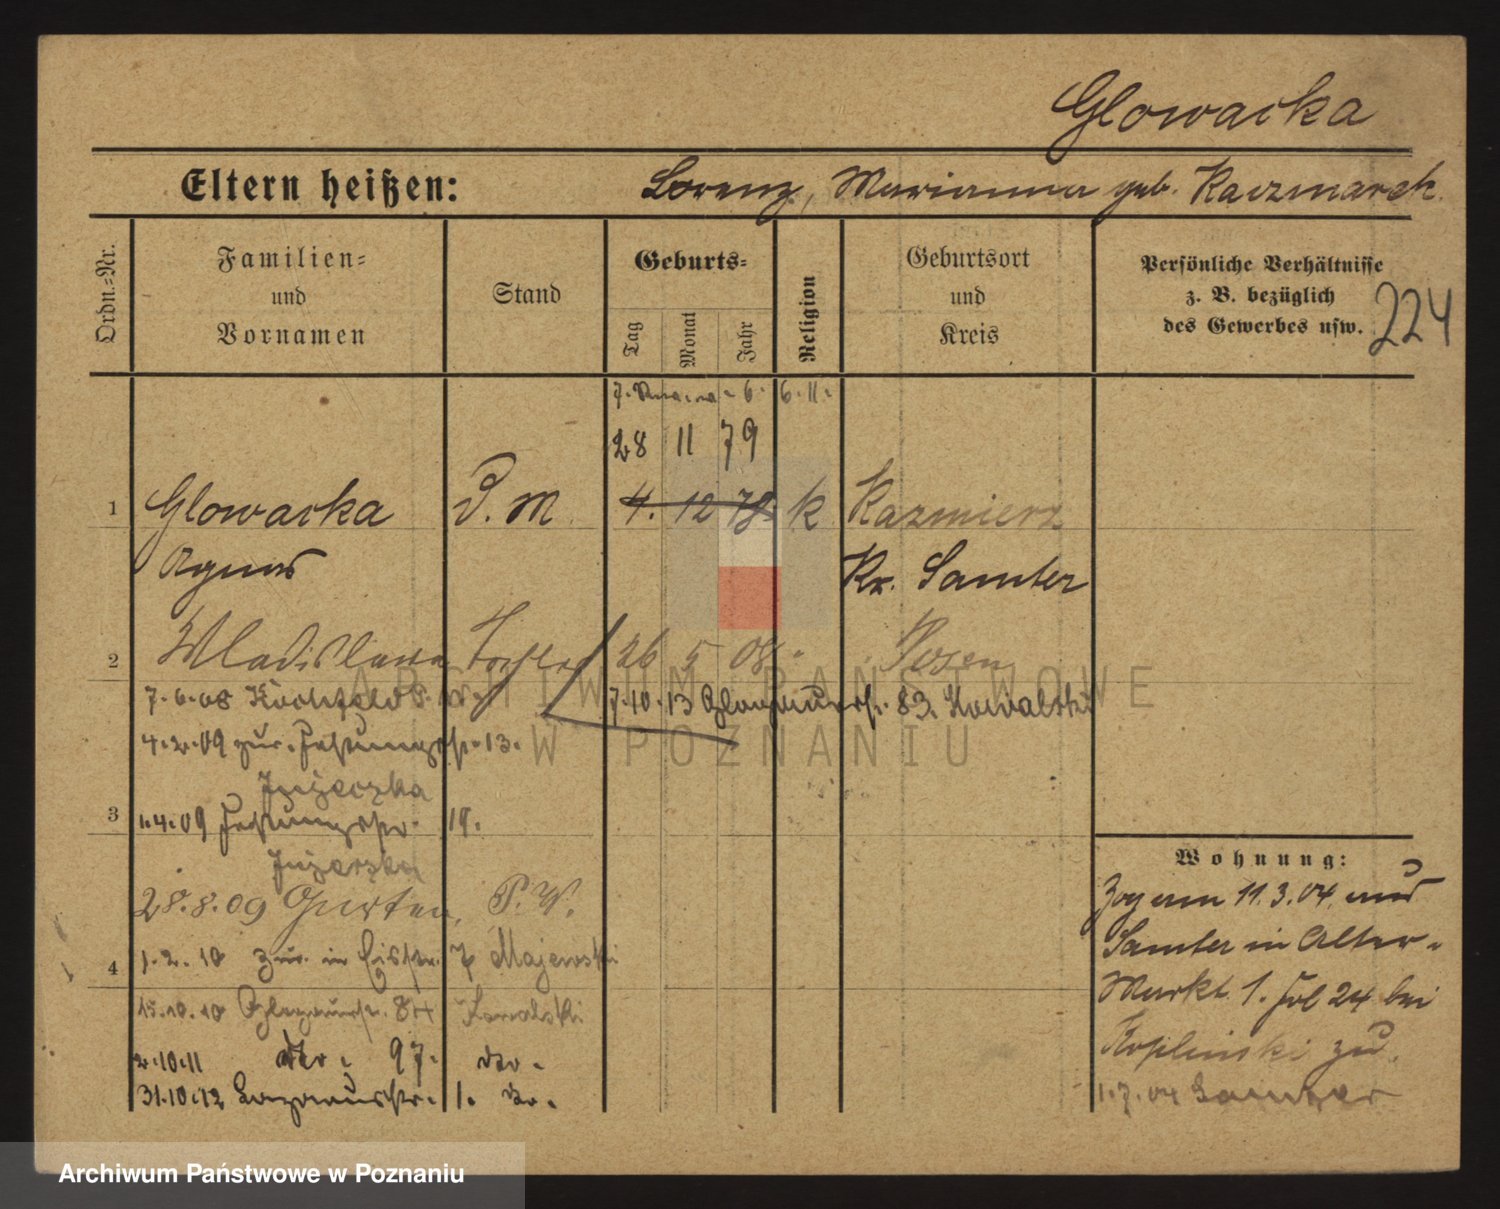 Glowacka
Eltern heißen: Lorenz, Marianna geb. Kaczmarek.
Ordn.-Nr.
Familien-
und
Vornamen
Stand
Geburts-
Tag
Monat
Jahr
Religion
Geburtsort
und
Kreis
Persönliche Verhältnisse
z. B. bezüglich
des Gewerbes usw.
224
6. 11.
28 11 79
1 Glowacka D. M. 4. 12 78. k Kazmierz
Agnes Kr. Samter
2 Wladislawa Tochter 26 5 08. Posen
7.6.08
7.10.13 Glogauerstr. 83. Kowalski
4.2.09 zur. Festungsstr. 13.
Juzeczka
3 1.4.09 Festungsstr. 18.
Juzeczka
28.8.09 Gurten, P. W.
4 1.2.10 zur. in 7 Majewski
15.10.10 Glogauerstr. 84 Kowalski
2.10.11 dto. 97. dto.
31.10.12 1. do.
Wohnung:
Zog am 11.3.04 aus
Samter in Alter-
Markt 1. 24 bei
Koplinski zu.
1.7.04 Samter
ARCHIWUM PAŃSTWOWE
W POZNANIU
Archiwum Państwowe w Poznaniu